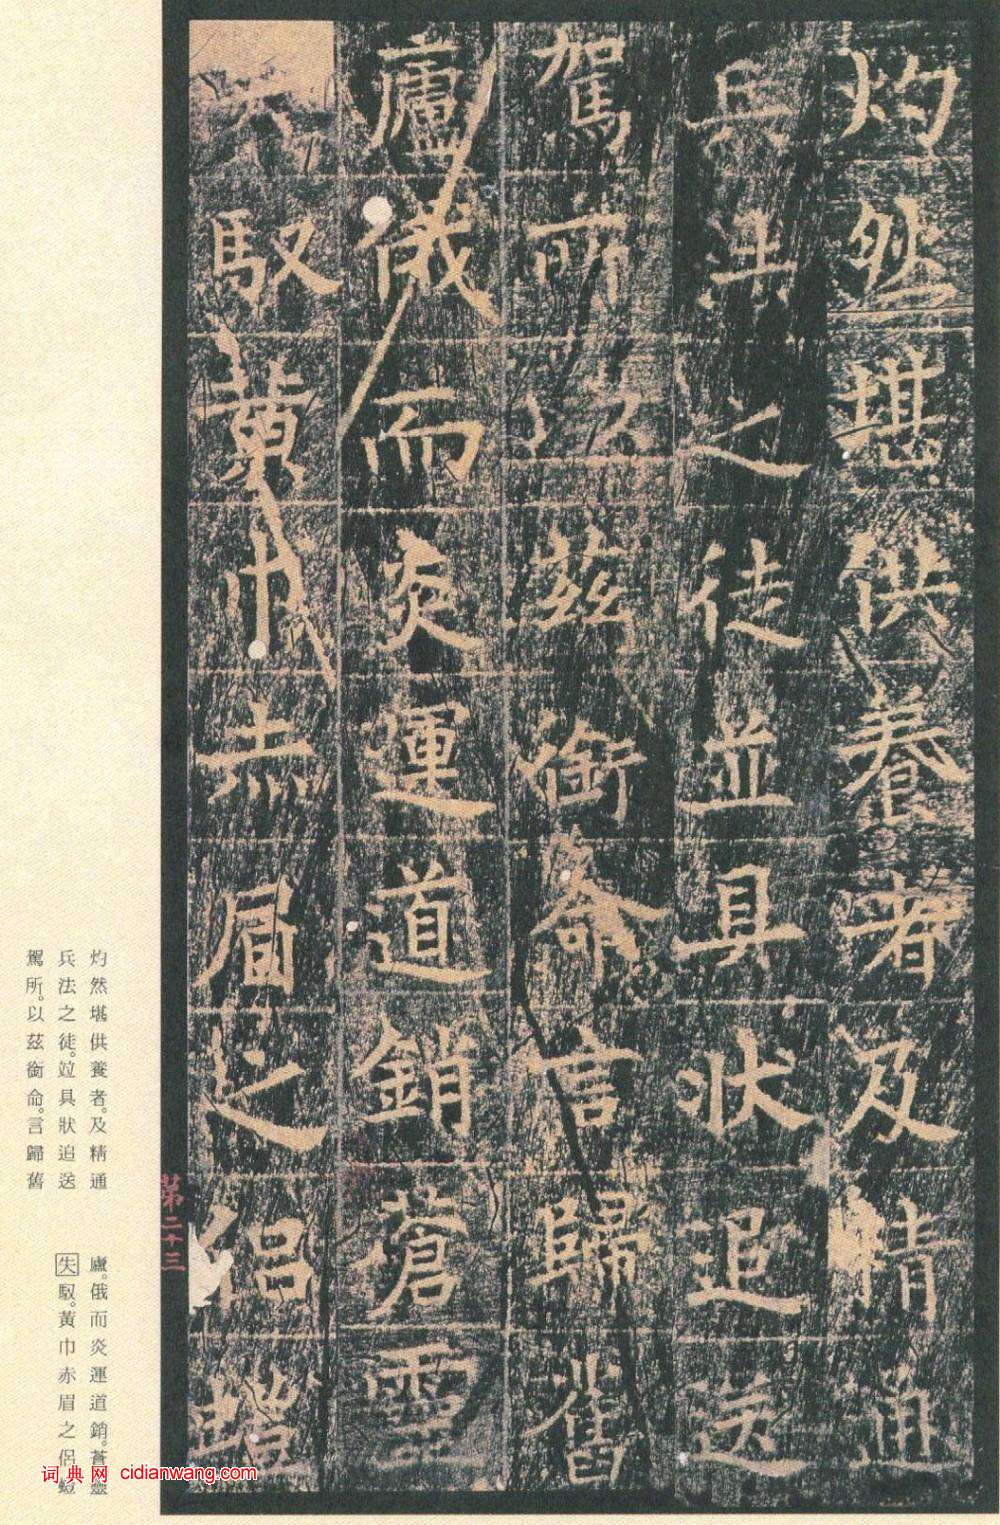 灼然堪供養者及精通
兵法之徒並具狀追送
駕所以茲銜命言歸舊
廬俄而炎運道銷蒼靈
失馭黃巾赤眉之侶螘
第二十三
灼然堪供養者。及精通
兵法之徒。竝具狀追送
駕所。以茲銜命。言歸舊
廬。俄而炎運道銷。蒼靈
失馭。黃巾赤眉之侶螘
词典网 cidianwang.com